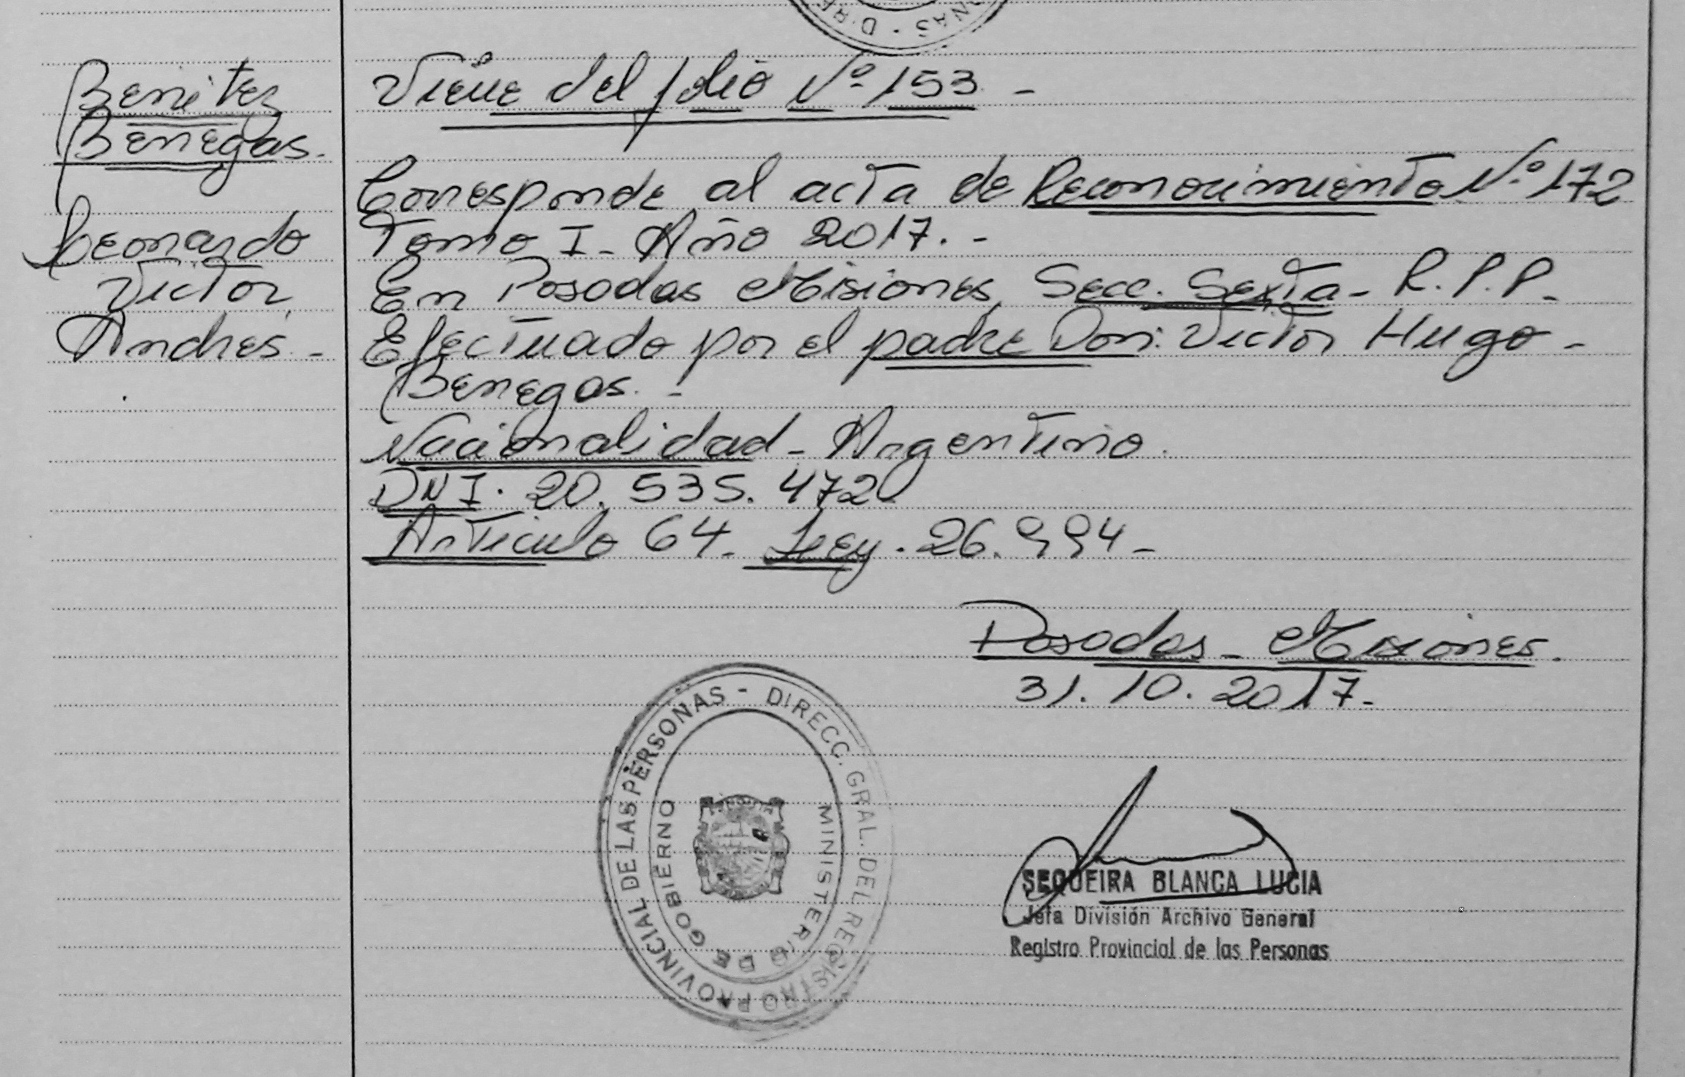 NAS - D RE
Benitez
Benegas.
Leonardo
Victor
Andres -
Viene del folio Nº 153 -
Corresponde al acta de Reconocimiento Nº 172
Tomo I - Año 2017. -
En Posadas Misiones, Secc. Sexta - R.P.P. -
Efectuado por el padre Don: Victor Hugo -
Benegas. -
Nacionalidad - Argentino.
DNI. 20.535.472
Articulo 64 - Ley. 26.994 -
Posadas - Misiones.
31.10.2017. -
DIRECC. GRAL. DEL REGISTRO PROVINCIAL DE LAS PERSONAS -
MINISTERIO DE GOBIERNO
SEQUEIRA BLANCA LUCIA
Jefa División Archivo General
Registro Provincial de las Personas